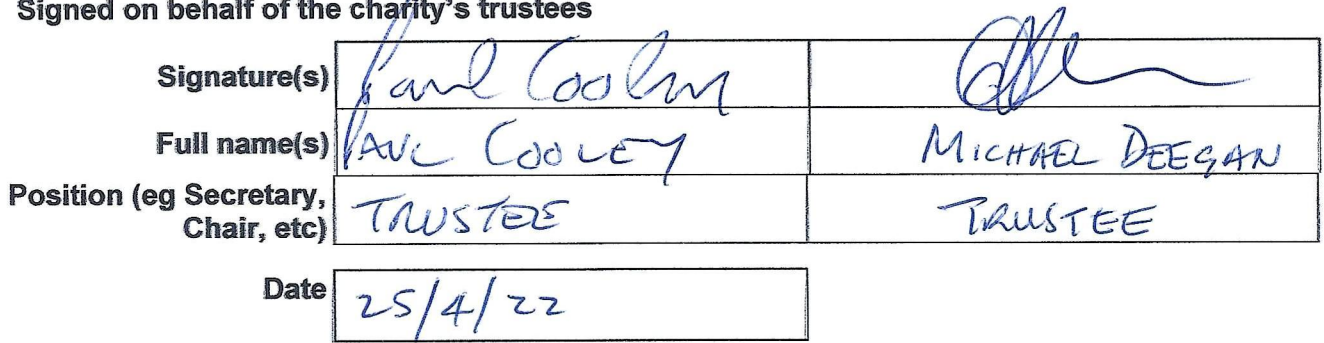 Signed on behalf of the charity's trustees
Signature(s) Paul Cooley
Full name(s) PAUL COOLEY MICHAEL DEEGAN
Position (eg Secretary, TRUSTEE TRUSTEE
Chair, etc)
Date 25/4/22